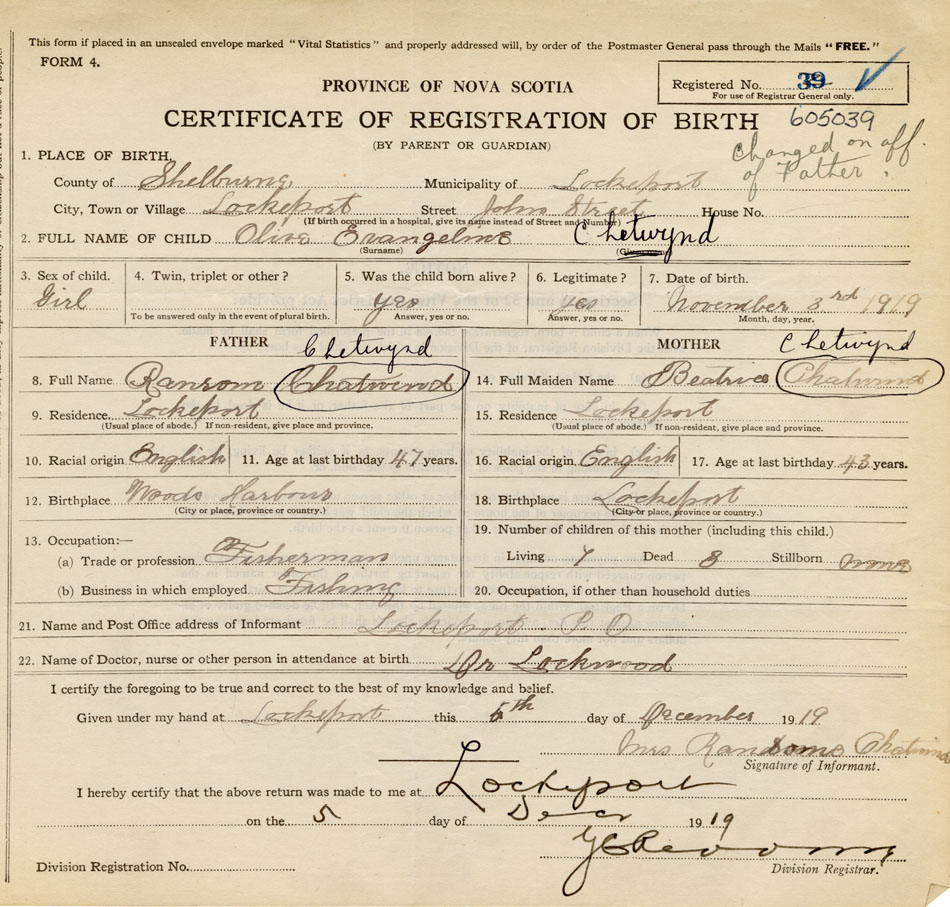 This form if placed in an unsealed envelope marked "Vital Statistics" and properly addressed will, by order of the Postmaster General pass through the Mails "FREE."
FORM 4.
Registered No. 39
For use of Registrar General only.
PROVINCE OF NOVA SCOTIA
CERTIFICATE OF REGISTRATION OF BIRTH 605039
(BY PARENT OR GUARDIAN)
changed on aff.
of Father.
1. PLACE OF BIRTH,
County of Shelburne Municipality of Lockeport
City, Town or Village Lockeport Street John Street House No.
(If birth occurred in a hospital, give its name instead of Street and Number)
2. FULL NAME OF CHILD Olive Evangeline Chetwynd
(Surname)
3. Sex of child. 4. Twin, triplet or other? 5. Was the child born alive? 6. Legitimate? 7. Date of birth.
Girl yes yes November 3rd 1919
To be answered only in the event of plural birth. Answer, yes or no. Answer, yes or no. Month, day, year.
FATHER Chetwynd MOTHER Chetwynd
8. Full Name Ransom Chatwind 14. Full Maiden Name Beatrice Chatwind
9. Residence. Lockeport 15. Residence Lockeport
(Usual place of abode.) If non-resident, give place and province. (Usual place of abode.) If non-resident, give place and province.
10. Racial origin English 11. Age at last birthday 47 years. 16. Racial origin English 17. Age at last birthday 43 years.
12. Birthplace Woods Harbour 18. Birthplace Lockeport
(City or place, province or country.) (City or place, province or country.)
19. Number of children of this mother (including this child.)
13. Occupation:—
(a) Trade or profession Fisherman Living 7 Dead 8 Stillborn none
(b) Business in which employed Fishing 20. Occupation, if other than household duties
21. Name and Post Office address of Informant Lockeport P O
22. Name of Doctor, nurse or other person in attendance at birth Dr Lockwood
I certify the foregoing to be true and correct to the best of my knowledge and belief.
Given under my hand at Lockeport this 5th day of December 1919
Mrs Ransome Chatwind
Signature of Informant.
I hereby certify that the above return was made to me at Lockeport
on the 5 day of Decr 1919
Division Registration No. Division Registrar.